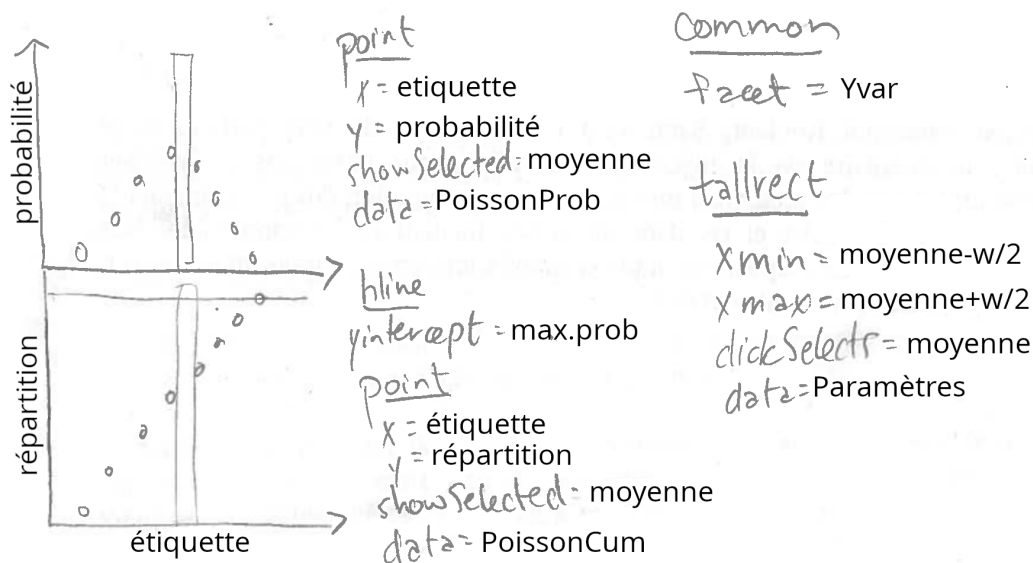 probabilité
répartition
étiquette
point
x = etiquette
y = probabilité
showSelected = moyenne
data = PoissonProb
hline
yintercept = max.prob
point
x = étiquette
y = répartition
showSelected = moyenne
data = PoissonCum
Common
facet = Yvar
tallrect
xmin = moyenne-w/2
xmax = moyenne+w/2
clickSelects = moyenne
data = Paramètres